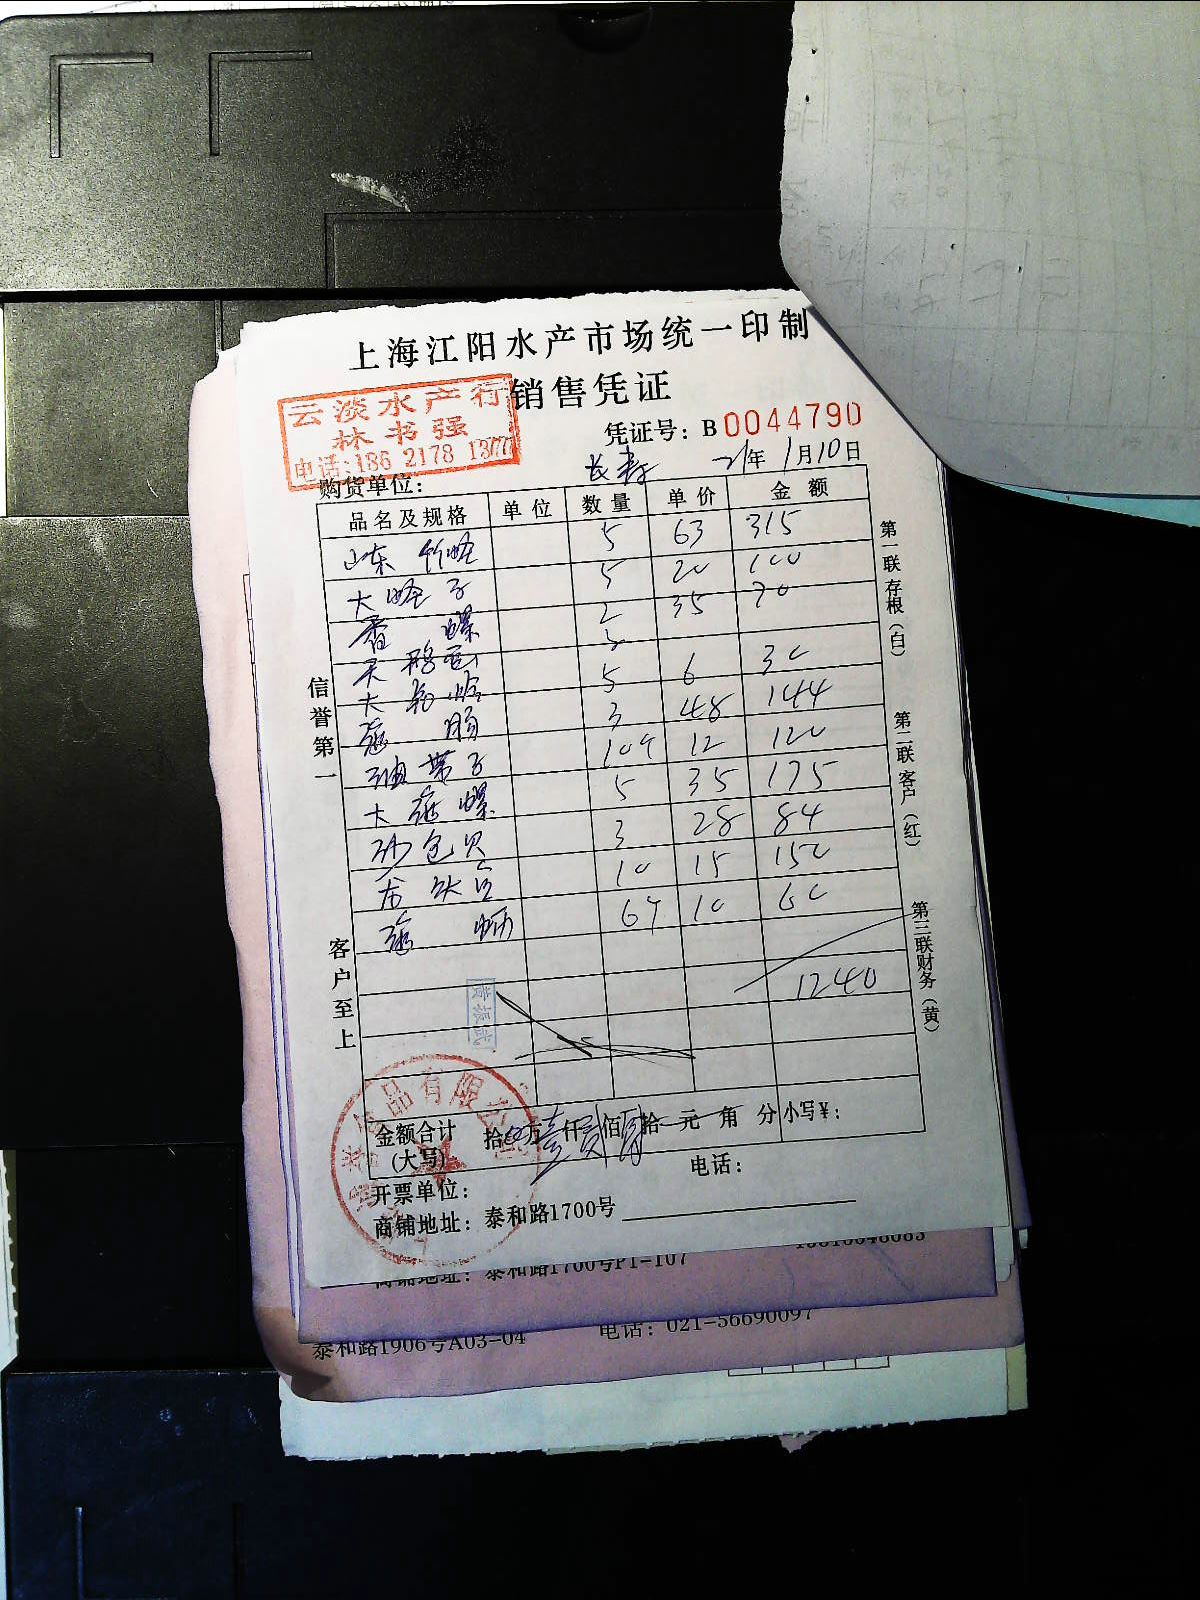 上海江阳水产市场统一印制
销售凭证
云淡水产行
林书强
电话:186 2178 1377
凭证号: B 0044790
购货单位: 长寿 21年 1月10日
品名及规格 单位 数量 单价 金额
山东 竹蛏 5 63 315
大蛏子 5 20 100
香螺 2 35 70
3
大 5 6 30
海肠 3 48 144
油带子 10个 12 120
大海螺 5 35 175
沙包贝 3 28 84
龙 10 15 150
海蛎 6个 10 60
1240
信誉第一
客户至上
第一联存根(白)
第二联客户(红)
第三联财务(黄)
黄振武
食品有限公司
金额合计
(大写)
拾 万 壹 仟 贰 佰 肆 拾 元 角 分 小写¥:
开票单位:
电话:
商铺地址: 泰和路1700号
商铺地址: 泰和路1700号P1-107
泰和路1906号A03-04 电话: 021-56690097